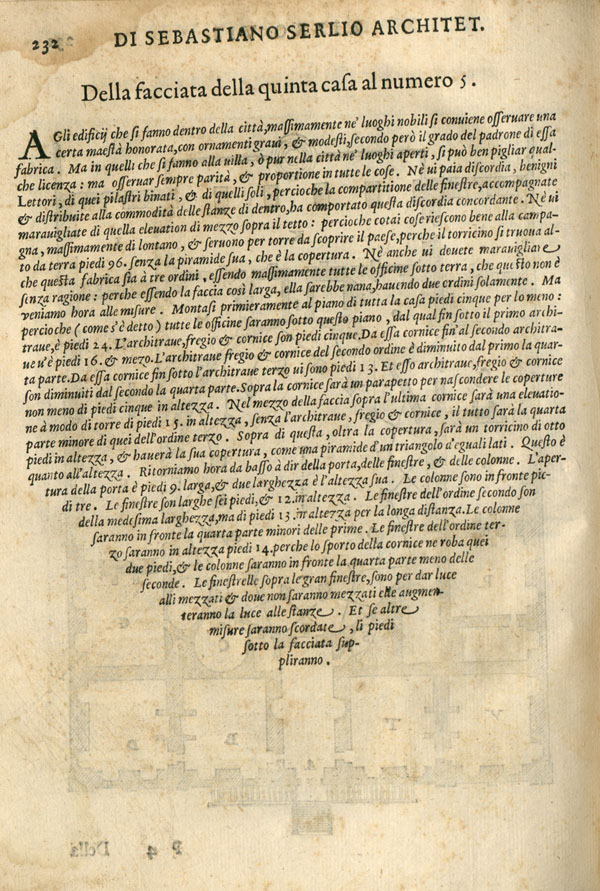 232 DI SEBASTIANO SERLIO ARCHITET.
Della facciata della quinta casa al numero 5.
AGli edificij che si fanno dentro della città, massimamente ne' luoghi nobili si conuiene osseruare una
certa maestà honorata, con ornamenti graui, & modesti, secondo però il grado del padrone di essa
fabrica. Ma in quelli che si fanno alla uilla, ò pur nella città ne' luoghi aperti, si può ben pigliar qual-
che licenza: ma osseruar sempre parità, & proportione in tutte le cose. Nè ui paia discordia, benigni
Lettori, di quei pilastri binati, & di quelli soli, percioche la compartitione delle finestre, accompagnate
& distribuite alla commodità delle stanze di dentro, ha comportato questa discordia concordante. Nè ui
marauigliate di quella eleuation di mezzo sopra il tetto: percioche cotai cose riescono bene alla campa-
gna, massimamente di lontano, & seruono per torre da scoprire il paese, perche il torricino si truoua al-
to da terra piedi 96. senza la piramide sua, che è la copertura. Nè anche ui douete marauigliare
che questa fabrica sia à tre ordini, essendo massimamente tutte le officine sotto terra, che questo non è
senza ragione: perche essendo la faccia così larga, ella sarebbe nana, hauendo due ordini solamente. Ma
veniamo hora alle misure. Montasi primieramente al piano di tutta la casa piedi cinque per lo meno:
percioche (come s'è detto) tutte le officine saranno sotto questo piano, dal qual fin sotto il primo archi-
traue, è piedi 24. L'architraue, fregio & cornice son piedi cinque. Da essa cornice fin'al secondo architra-
ue u'è piedi 16. & mezo. L'architraue fregio & cornice del secondo ordine è diminuito dal primo la quar-
ta parte. Da essa cornice fin sotto l'architraue terzo ui sono piedi 13. Et esso architraue, fregio & cornice
son diminuiti dal secondo la quarta parte. Sopra la cornice sarà un parapetto per nascondere le coperture
non meno di piedi cinque in altezza. Nel mezzo della faccia sopra l'ultima cornice sarà una eleuatio-
ne à modo di torre di piedi 15. in altezza, senza l'architraue, fregio & cornice, il tutto sarà la quarta
parte minore di quei dell'ordine terzo. Sopra di questa, oltra la copertura, sarà un torricino di otto
piedi in altezza, & hauerà la sua copertura, come una piramide d'un triangolo d'eguali lati. Questo è
quanto all'altezza. Ritorniamo hora da basso à dir della porta, delle finestre, & delle colonne. L'aper-
tura della porta è piedi 9. larga, & due larghezza è l'altezza sua. Le colonne sono in fronte pie-
di tre. Le finestre son larghe sei piedi, & 12. in altezza. Le finestre dell'ordine secondo son
della medesima larghezza, ma di piedi 13 in altezza per la longa distanza. Le colonne
saranno in fronte la quarta parte minori delle prime. Le finestre dell'ordine ter-
zo saranno in altezza piedi 14. perche lo sporto della cornice ne roba quei
due piedi, & le colonne saranno in fronte la quarta parte meno delle
seconde. Le finestrelle sopra le gran finestre, sono per dar luce
alli mezzati & doue non saranno mezzati elle augmen-
teranno la luce alle stanze. Et se altre
misure saranno scordate, li piedi
sotto la facciata sup-
pliranno.
P 4 Della